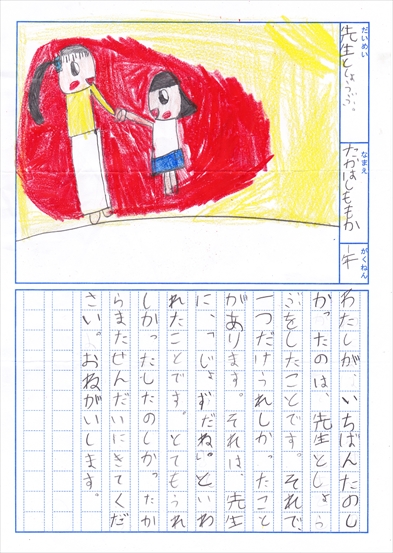 だいめい
先生としょうぶ。
なまえ
たかはしももか
がくねん
一年
わたしが、いちばんたのし
かったのは、先生としょう
ぶをしたことです。それで、
一つだけうれしかったこと
があります。それは、先生
に、「じょずだね。」といわ
れたことです。とてもうれ
しかったしたのしかったか
らまたせんだいにきてくだ
さい。おねがいします。